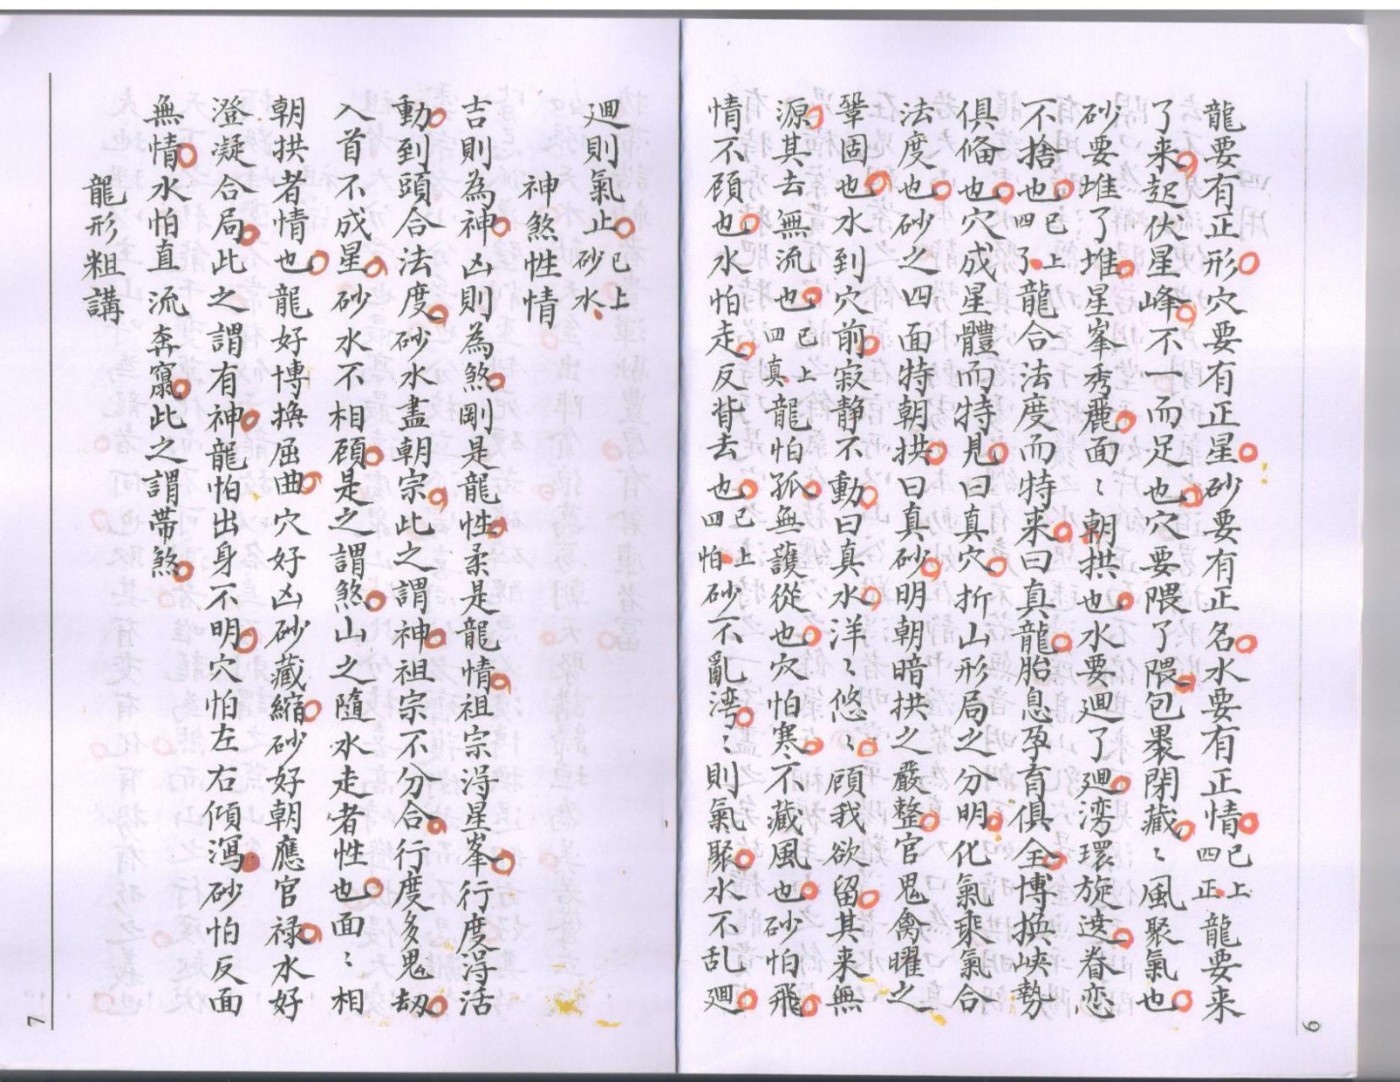 龍要有正形穴要有正星砂要有正名水要有正情已上四正龍要來
了來起伏星峰不一而足也穴要隈了隈包裹閉藏﹕風聚氣也
砂要堆了堆星峯秀麗面﹕朝拱也水要迴了迴湾環旋遶眷恋
不捨也已上四了龍合法度而特來曰真龍胎息孕育俱全博換峽勢
俱俻也穴成星體而特見曰真穴折山形局之分明化氣乘氣合
法度也砂之四面特朝拱曰真砂明朝暗拱之嚴整官鬼禽曜之
鞏固也水到穴前寂静不動曰真水洋﹕悠﹕顾我欲留其来無
源其去無流也已上四真龍怕孤無護從也穴怕寒不藏風也砂怕飛
情不顾也水怕走反背去也已上四怕砂不亂湾﹕則氣聚水不乱迴
迴則氣止已上砂水
神煞性情
吉則為神凶則為煞剛是龍性柔是龍情祖宗淂星峯行度淂活
動到頭合法度砂水盡朝宗此之謂神祖宗不分合行度多鬼刼
入首不成星砂水不相顾是之謂煞山之隨水走者性也面﹕相
朝拱者情也龍好博換屈曲穴好凶砂藏縮砂好朝應官禄水好
澄凝合局此之謂有神龍怕出身不明穴怕左右傾瀉砂怕反面
無情水怕直流奔竄此之謂帶煞
龍形粗講
6
7